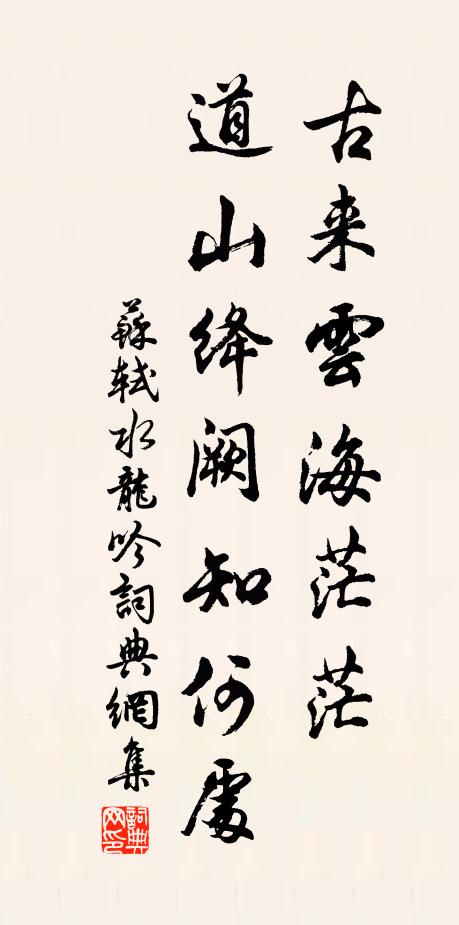 古来雲海茫茫
道山绛阙知何處
蘇軾水龍吟詞典網集
詞典网印